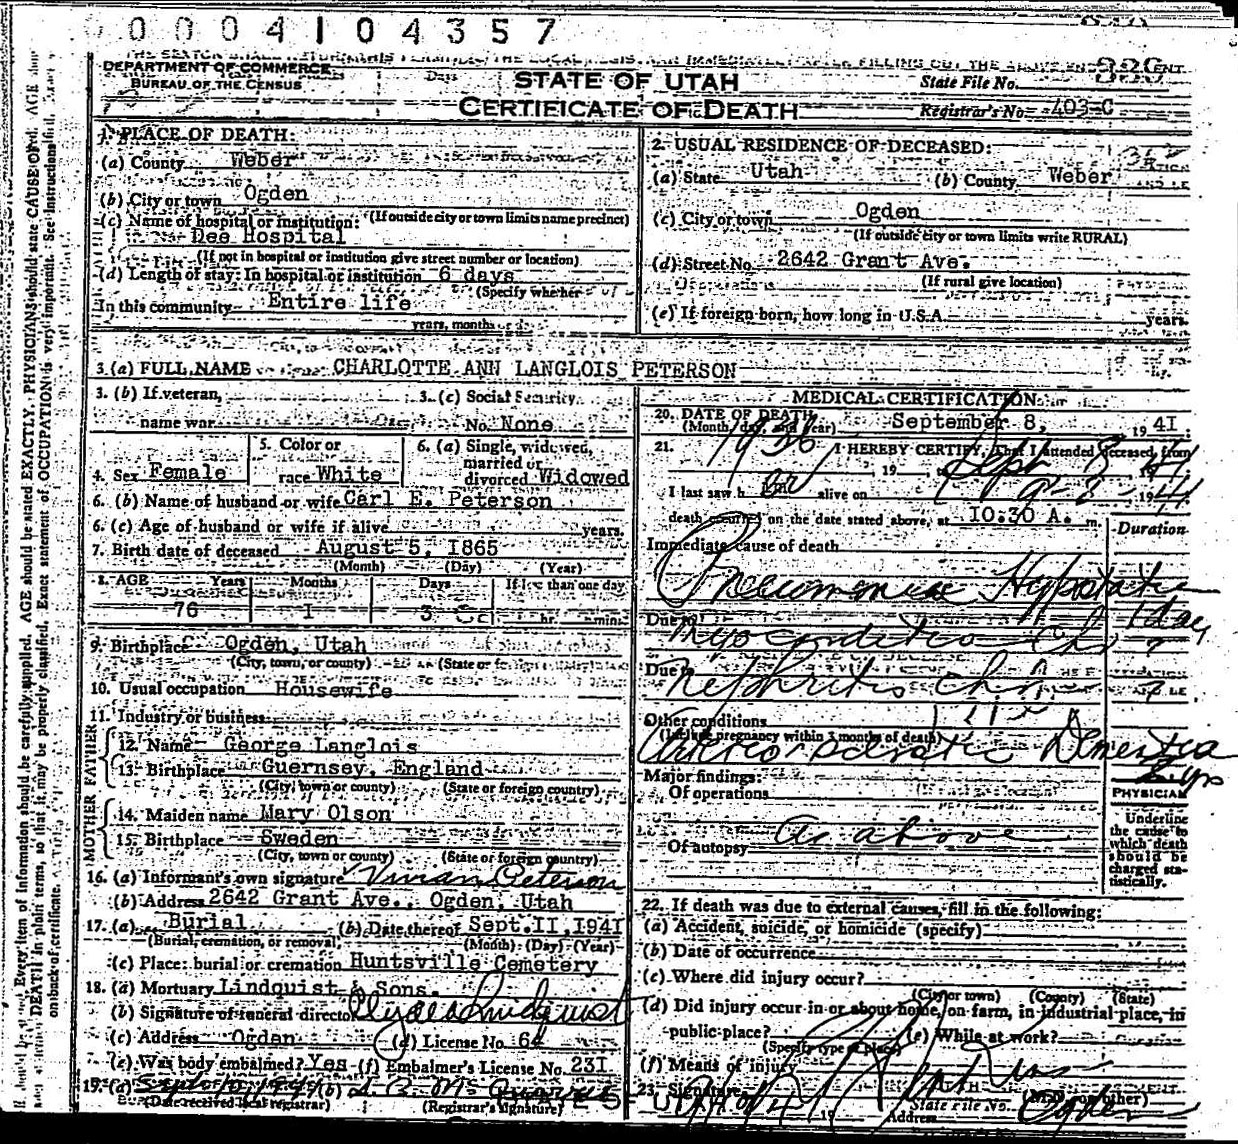 0004104357
DEPARTMENT OF COMMERCE
BUREAU OF THE CENSUS
STATE OF UTAH
CERTIFICATE OF DEATH
State File No.
Registrar's No. 403-C
1. PLACE OF DEATH:
(a) County Weber
(b) City or town Ogden
(If outside city or town limits name precinct)
(c) Name of hospital or institution:
Dee Hospital
(If not in hospital or institution give street number or location)
(d) Length of stay: In hospital or institution 6 days
(Specify whether
In this community Entire life
years, months or days
2. USUAL RESIDENCE OF DECEASED:
(a) State Utah (b) County Weber
(c) City or town Ogden
(If outside city or town limits write RURAL)
(d) Street No. 2642 Grant Ave.
(If rural give location)
(e) If foreign born, how long in U.S.A. years.
3. (a) FULL NAME CHARLOTTE ANN LANGLOIS PETERSON
3. (b) If veteran, 3. (c) Social Security
name war No. None
4. Sex Female
5. Color or
race White
6. (a) Single, widowed,
married or
divorced Widowed
6. (b) Name of husband or wife Carl E. Peterson
6. (c) Age of husband or wife if alive years.
7. Birth date of deceased August 5, 1865
(Month) (Day) (Year)
8. AGE Years Months Days If less than one day
76 1 3 hr. min.
9. Birthplace Ogden, Utah
(City, town, or county)
10. Usual occupation Housewife
11. Industry or business
FATHER
12. Name George Langlois
13. Birthplace Guernsey, England
(City, town or county) (State or foreign country)
MOTHER
14. Maiden name Mary Olson
15. Birthplace Sweden
(City, town or county) (State or foreign country)
16. (a) Informant's own signature Vivian Peterson
(b) Address 2642 Grant Ave., Ogden, Utah
17. (a) Burial (b) Date thereof Sept. 11, 1941
(Burial, cremation, or removal) (Month) (Day) (Year)
(c) Place: burial or cremation Huntsville Cemetery
18. (a) Mortuary Lindquist & Sons.
(b) Signature of funeral director Clyde Lindquist
(c) Address Ogden (d) License No. 64
(e) Was body embalmed? Yes (f) Embalmer's License No. 231
19. (a) (b)
(Date received local registrar) (Registrar's signature)
MEDICAL CERTIFICATION
20. DATE OF DEATH September 8, 1941
(Month, day, and year)
21. I HEREBY CERTIFY, That I attended deceased from
1936 19 to Sept 8 41
I last saw her alive on 9-8-1941
death occurred on the date stated above, at 10:30 A. m.
Duration
Immediate cause of death
Pneumonia Hypostatic
1 day
Due to Myocarditis Ch ?
Due to Nephritis ch ?
Other conditions
(Include pregnancy within 3 months of death)
Arterio sclerotic Dementia
2 yrs
Major findings:
Of operations
Of autopsy As above
PHYSICIAN
Underline
the cause to
which death
should be
charged sta-
tistically.
22. If death was due to external causes, fill in the following:
(a) Accident, suicide, or homicide (specify)
(b) Date of occurrence
(c) Where did injury occur?
(City or town) (County) (State)
(d) Did injury occur in or about home, on farm, in industrial place, in
public place? (e) While at work?
(Specify type of place)
(f) Means of injury
23. Signature
(M.D. or other)
Address Ogden
State File No.